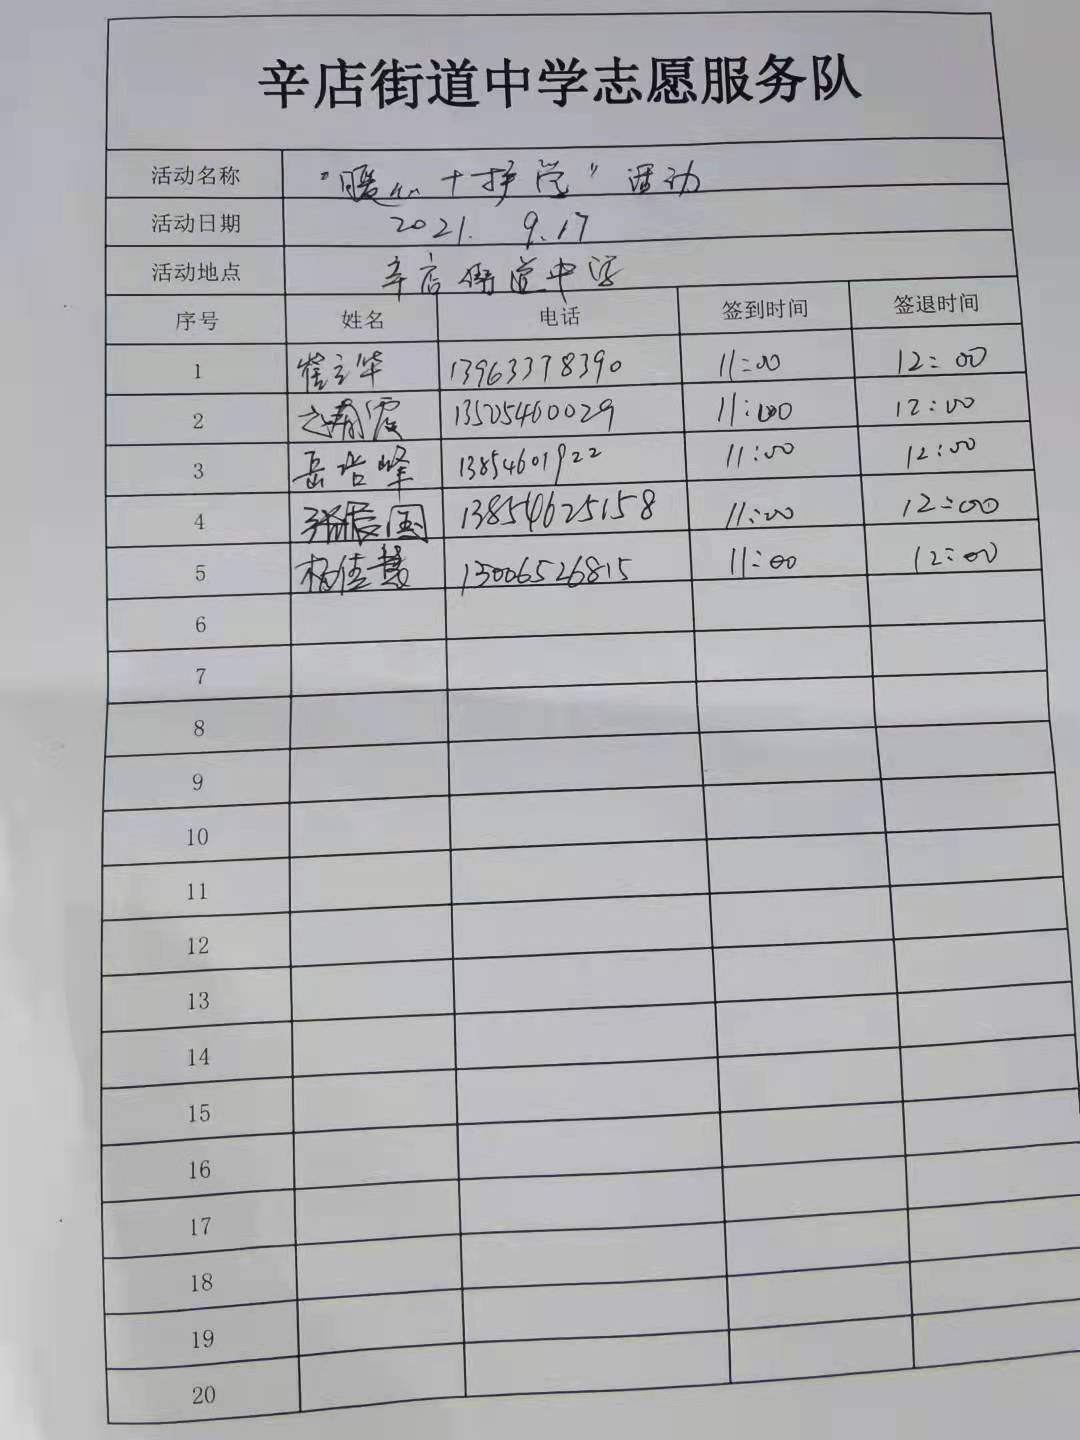 辛店街道中学志愿服务队
活动名称 "暖心十护学"活动
活动日期 2021. 9.17
活动地点 辛店街道中学
序号 姓名 电话 签到时间 签退时间
1 崔立华 13963378390 11:00 12:00
2 13505460029 11:00 12:00
3 岳岩峰 13854601922 11:00 12:00
4 张辰国 13854625158 11:00 12:00
5 杨佳慧 13006526815 11:00 12:00
6
7
8
9
10
11
12
13
14
15
16
17
18
19
20